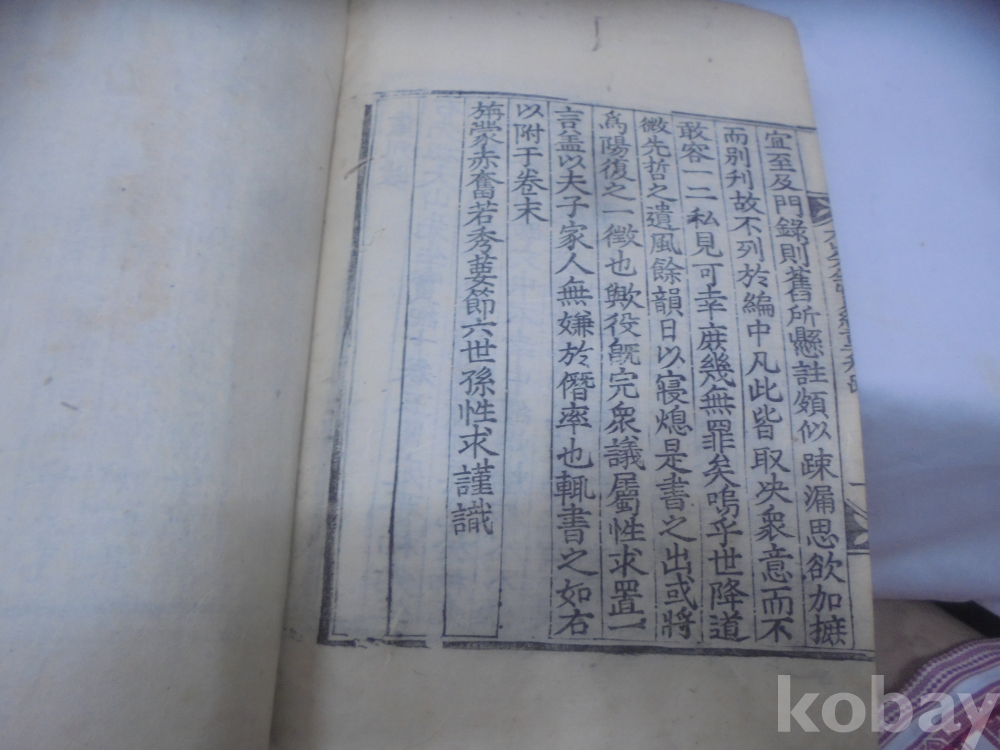 宜至及門錄則舊所懸註頗似踈漏思欲加摭
而別刋故不列於編中凡此皆取决衆意而不
敢容一二私見可幸庶幾無罪矣嗚乎世降道
微先哲之遺風餘韻日以寢熄是書之出或將
爲陽復之一徵也歟役旣完衆議屬性求置一
言盖以夫子家人無嫌於僭率也輒書之如右
以附于卷末
旃蒙赤奮若秀葽節六世孫性求謹識
kobay